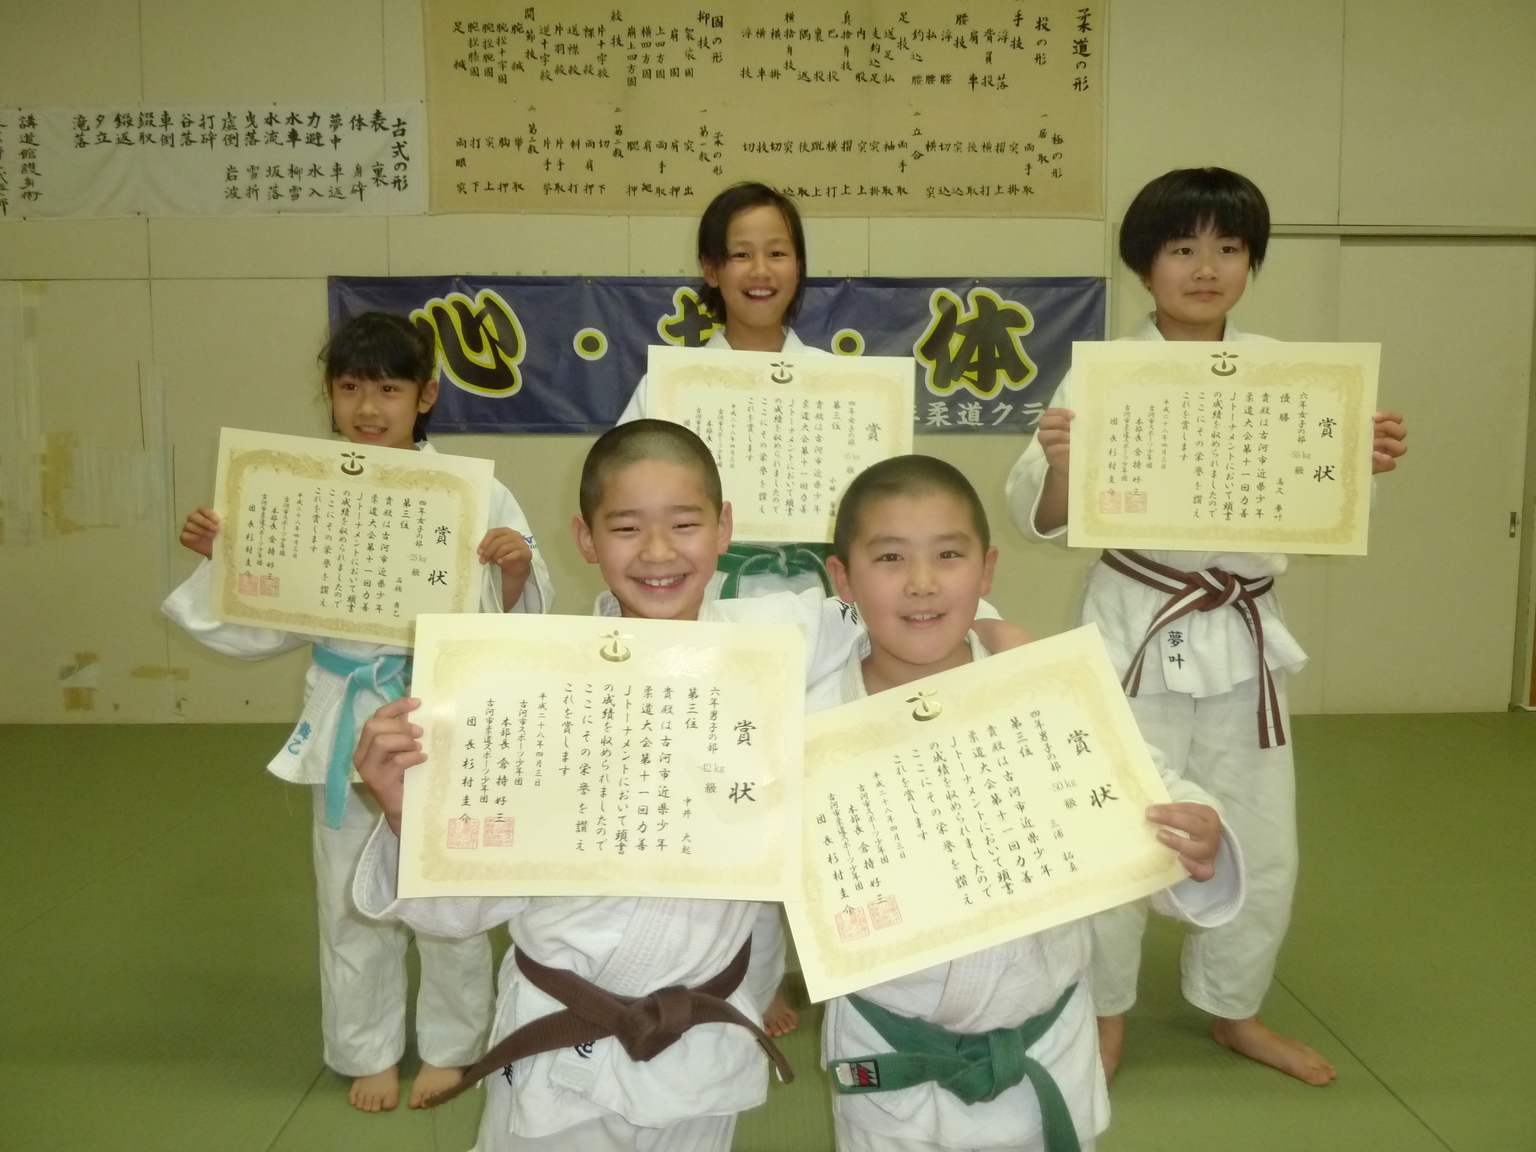 柔道の形
投の形
手技
浮落
背負投
肩車
腰技
浮腰
払腰
釣込腰
足技
送足払
支釣込足
内股
真捨身技
巴投
裏投
隅返
横捨身技
横掛
横車
浮技
固の形
抑技
袈裟固
肩固
上四方固
横四方固
崩上四方固
絞技
片十字絞
裸絞
送襟絞
片羽絞
逆十字絞
関節技
腕緘
腕挫十字固
腕挫腕固
腕挫膝固
足緘
極の形
一居取
両手取
突掛
摺上
横打
後取
突込
切込
横突
二立合
両手取
袖取
突掛
突上
摺上
横打
蹴上
後取
突込
切込
柔の形
一第一教
突出
肩押
両手取
肩廻
腮押
二第二教
切下
両肩押
斜打
片手取
片手挙
三第三教
帯取
胸押
突上
打下
両眼突
古式の形
表 裏
体 身砕
夢中 車返
力避 水入
水車 柳雪
水流 坂落
曳落 雪折
虚倒 岩波
打砕
谷落
車倒
錣取
錣返
夕立
滝落
講道館護身術
心・技・体
柔道クラ
賞状
四年女子の部 -25kg級
第三位
貴殿は古河市近県少年
柔道大会第十一回力善
Jトーナメントにおいて頭書
の成績を収められましたので
ここにその栄誉を讃え
これを賞します
平成二十八年四月三日
古河市スポーツ少年団
本部長 倉持好三
古河市柔道スポーツ少年団
団長 杉村圭介
賞
四年女子の部 -45kg級
第三位
貴殿は古河市近県少年
柔道大会第十一回力善
Jトーナメントにおいて頭書
の成績を収められましたので
ここにその栄誉を讃え
これを賞します
平成二十八年四月三日
賞状
六年女子の部 -55kg級
優勝
高久 夢叶
貴殿は古河市近県少年
柔道大会第十一回力善
Jトーナメントにおいて頭書
の成績を収められましたので
ここにその栄誉を讃え
これを賞します
平成二十八年四月三日
古河市スポーツ少年団
本部長 倉持好三
古河市柔道スポーツ少年団
団長 杉村圭介
夢叶
賞状
六年男子の部 -42kg級
第三位
中井 大起
貴殿は古河市近県少年
柔道大会第十一回力善
Jトーナメントにおいて頭書
の成績を収められましたので
ここにその栄誉を讃え
これを賞します
平成二十八年四月三日
古河市スポーツ少年団
本部長 倉持好三
古河市柔道スポーツ少年団
団長 杉村圭介
賞状
四年男子の部 -50kg級
第三位
三浦 拓真
貴殿は古河市近県少年
柔道大会第十一回力善
Jトーナメントにおいて頭書
の成績を収められましたので
ここにその栄誉を讃え
これを賞します
平成二十八年四月三日
古河市スポーツ少年団
本部長 倉持好三
古河市柔道スポーツ少年団
団長 杉村圭介